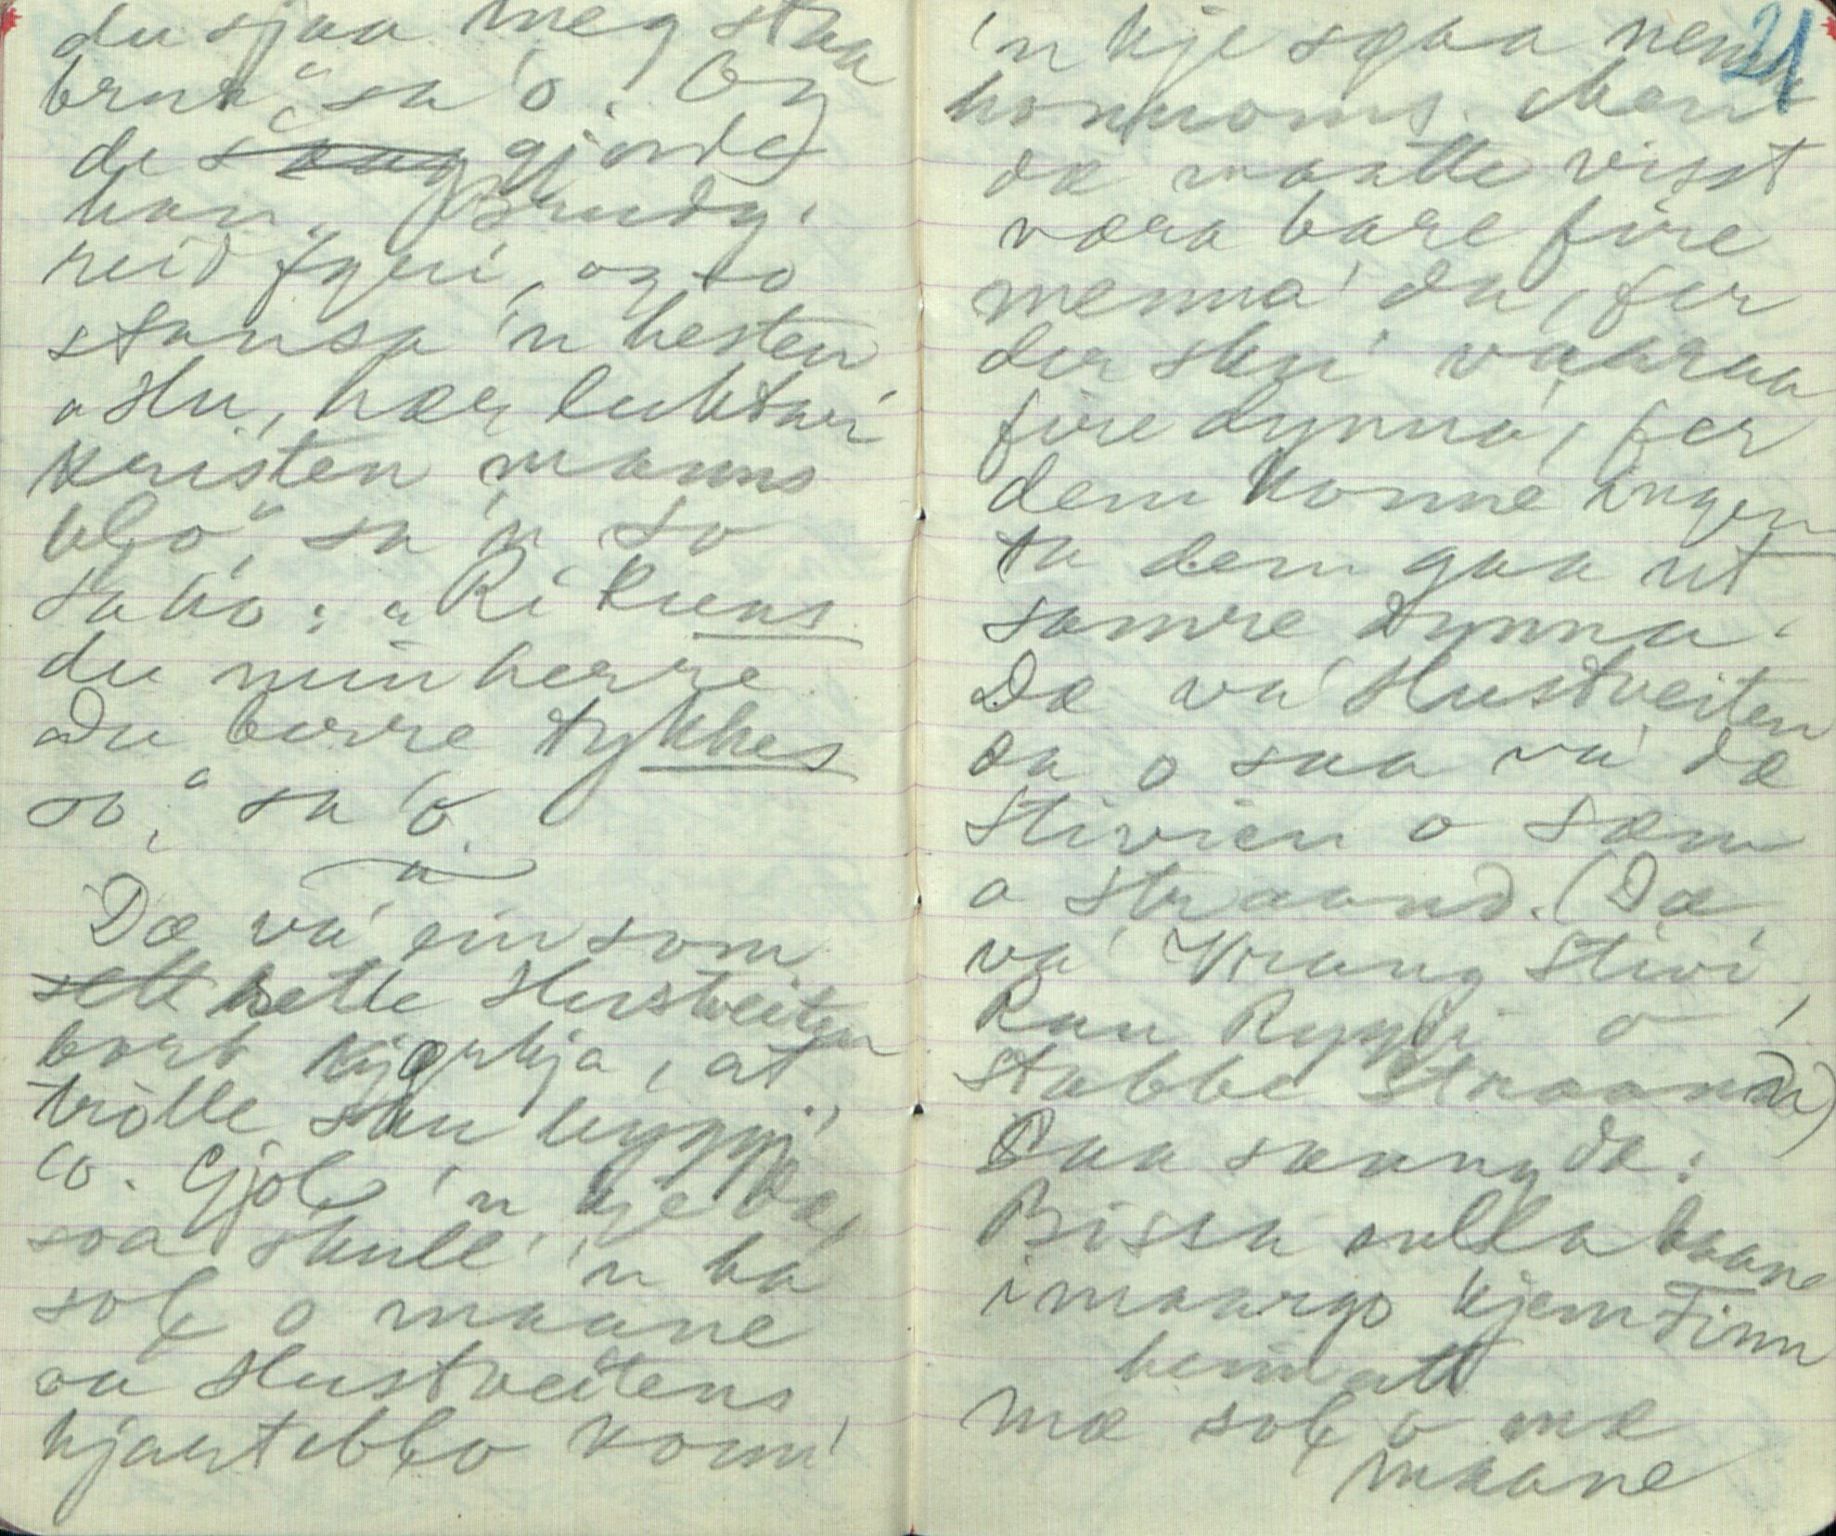 du sjaa meg staa
brur" sa 'o. Og
de saang gjorde
han. Brudg.
reid fyri, og so
stansa 'n hesten
"Hu, hær luktar
kristen manns
blo", sa 'n so
sa ho: "Ri kuns
du min herre
Du berre tykkes
so," sa 'o.
Dæ va' ein som
sett hette Hustveiten
bort kjørkja, at
trolle sku byggj'
'o. Gjol 'n kje dæ,
soa skulle 'n ha
sol o maane
va Hustveitens
hjarteblo komm'
21
'n kje spaa nemne
honnoms. Men
dæ maatte visst
væra bare fire
menna' da, fer
der sku' vaaraa
fire dynna', fer
dem konne ingen
ta dem gaa ut
samre dynna.
Dæ va' Hustveiten
da o saa va' dæ
Stivien o sæm
a Straand. (Dæ
va' Vrang Stivi,
Rau Ryggi o
Stabbe Straand)
Saa saang dæ:
Bissa rulla baane
i maargo kjem Finn
heimatt
Mæ sol o mæ
maane